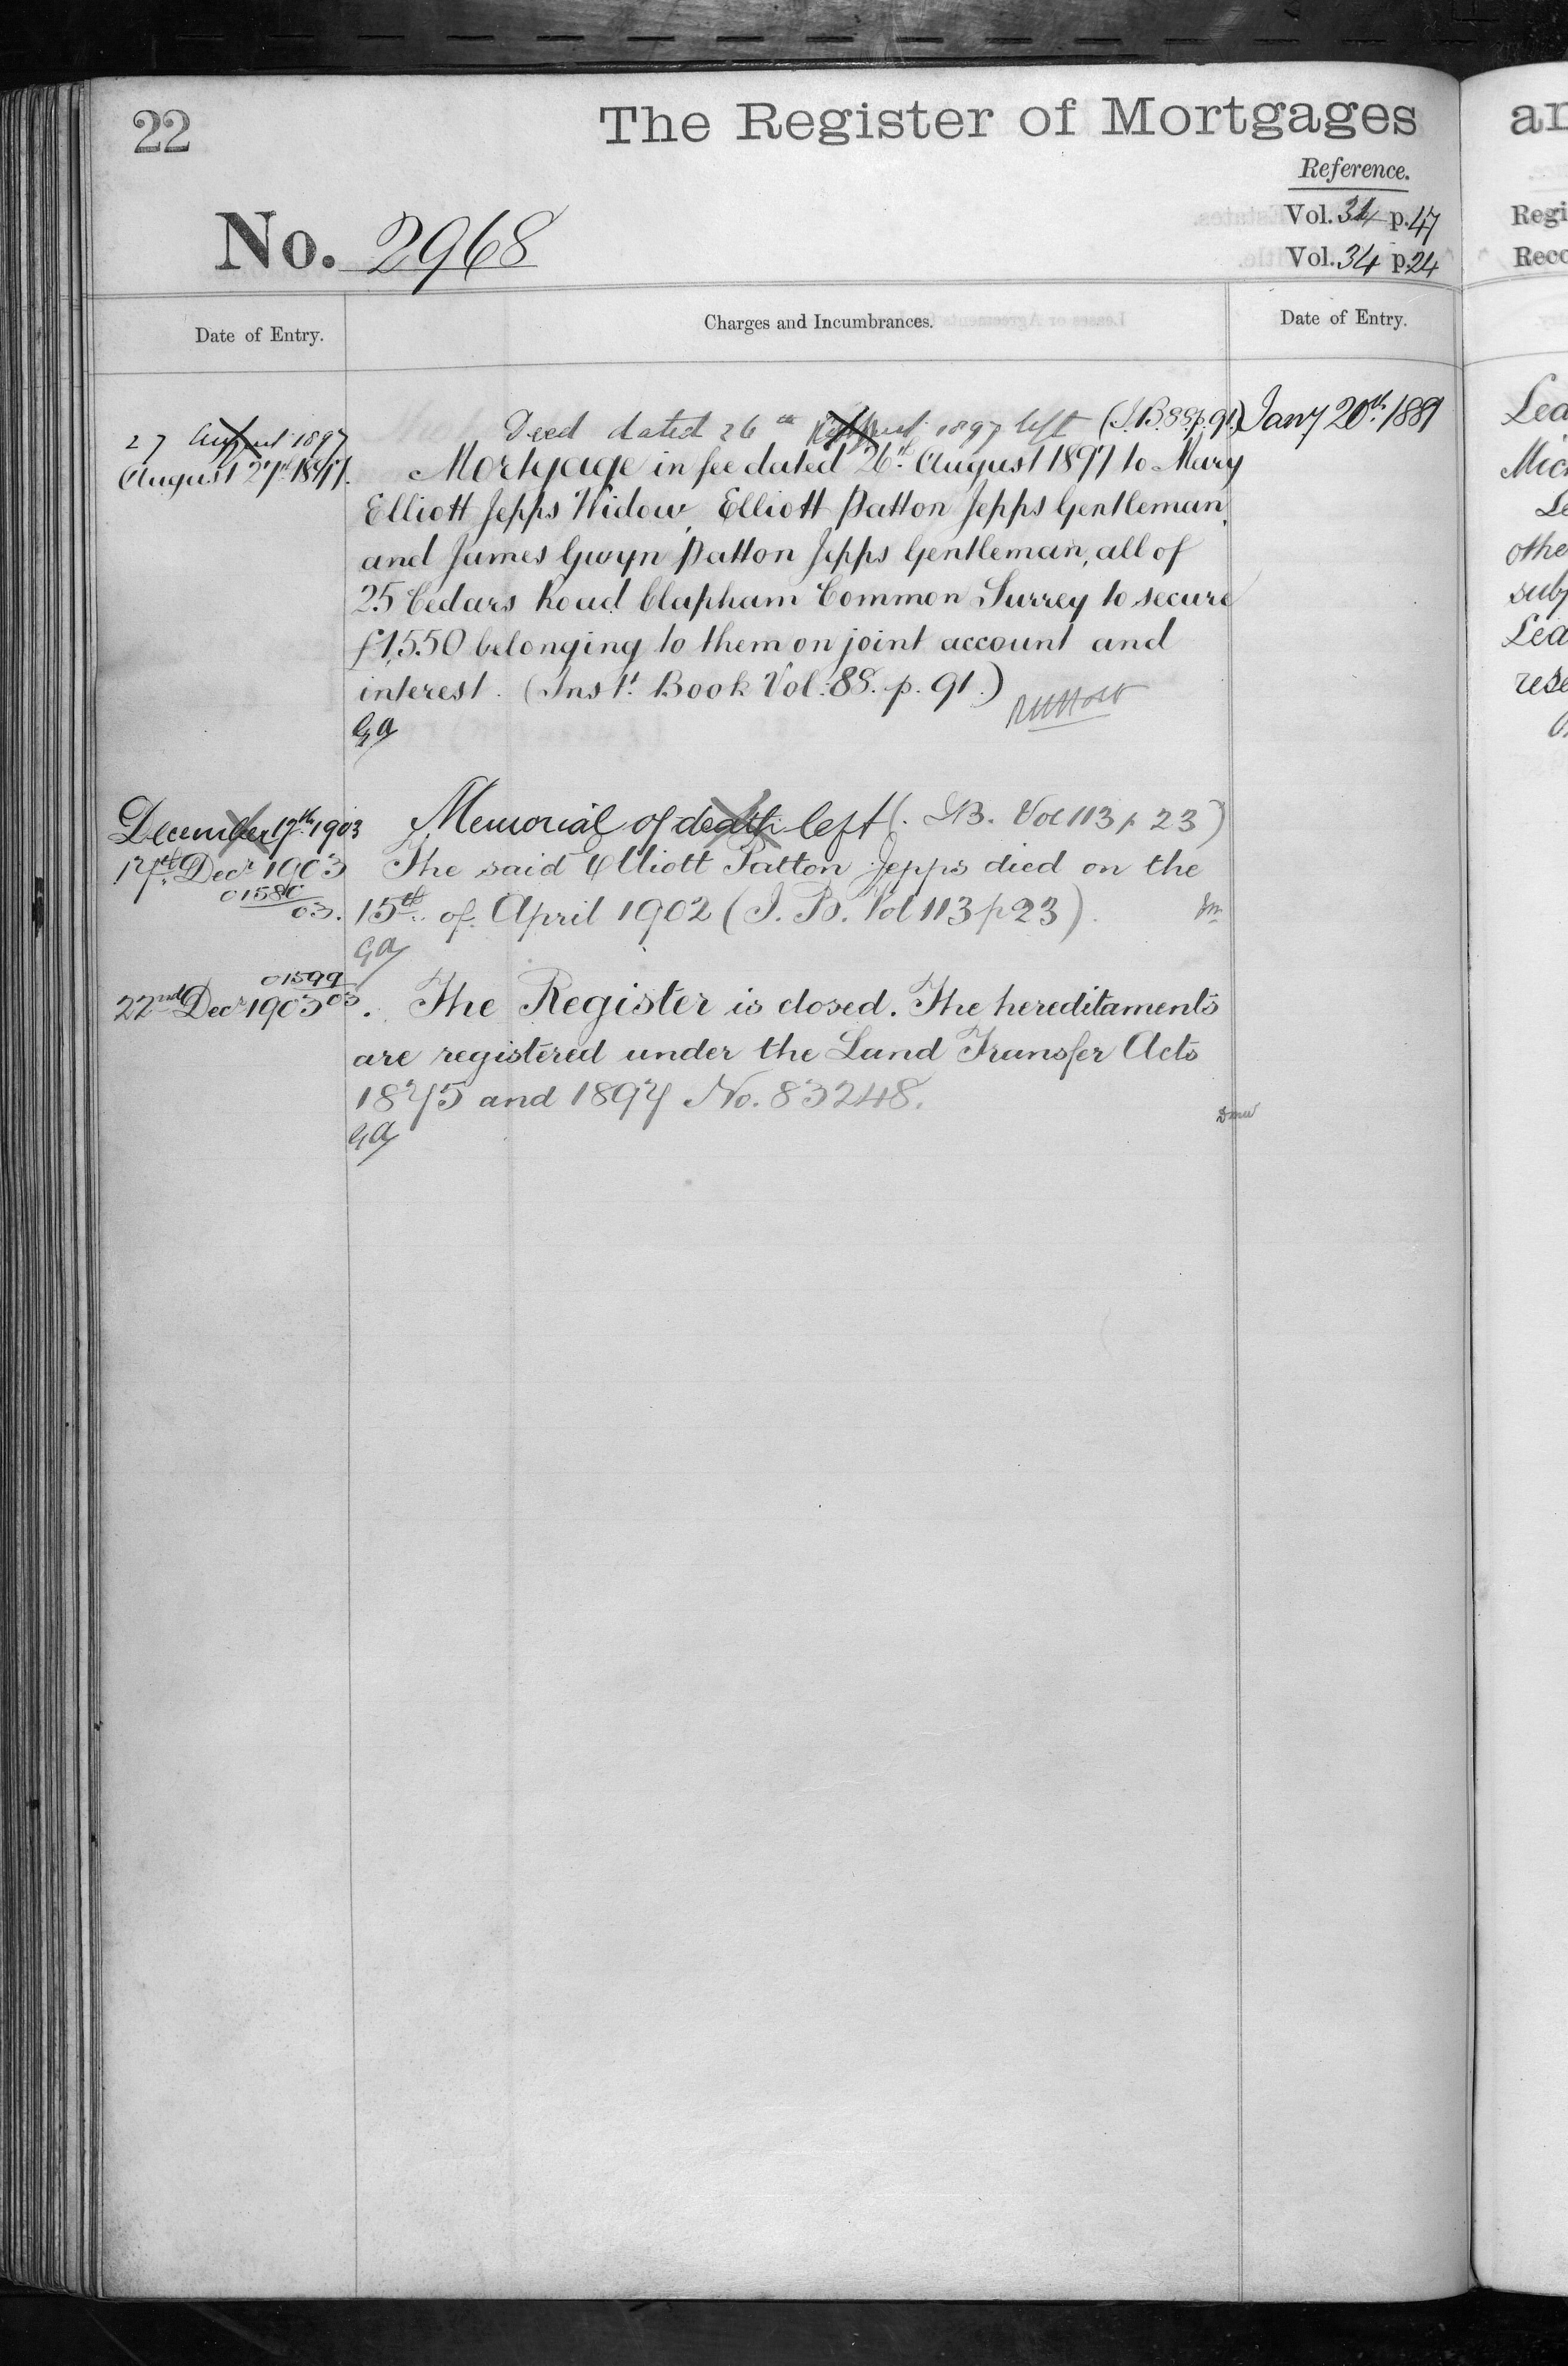 22
The Register of Mortgages
Reference.
Vol. 34 p. 47
Vol. 34 p. 24
No. 2968
Date of Entry.
Charges and Incumbrances.
Date of Entry.
27 August 1897
Deed dated 26th August 1897 left (I.B. 88 p. 91)
Jany 20th 1881
August 27th 1897.
Mortgage in fee dated 26th August 1897 to Mary
Elliott Jepps Widow, Elliott Patton Jepps Gentleman,
and James Gwyn Patton Jepps Gentleman, all of
25 Cedars Road Clapham Common Surrey to secure
£1,550 belonging to them on joint account and
interest. (Inst. Book Vol. 88. p. 91.)
GA
December 17th 1903
Memorial of death left (I.B. Vol 113 p. 23)
17th Decr 1903
01580
03.
The said Elliott Patton Jepps died on the
15th of April 1902 (I. B. Vol 113 p 23).
GA
01599
03
22nd Decr 1903.
The Register is closed. The hereditaments
are registered under the Land Transfer Acts
1875 and 1897 No. 83248.
GA
an
Regi
Reco
Lea
Mich
Le
othe
subj
Lea
rese